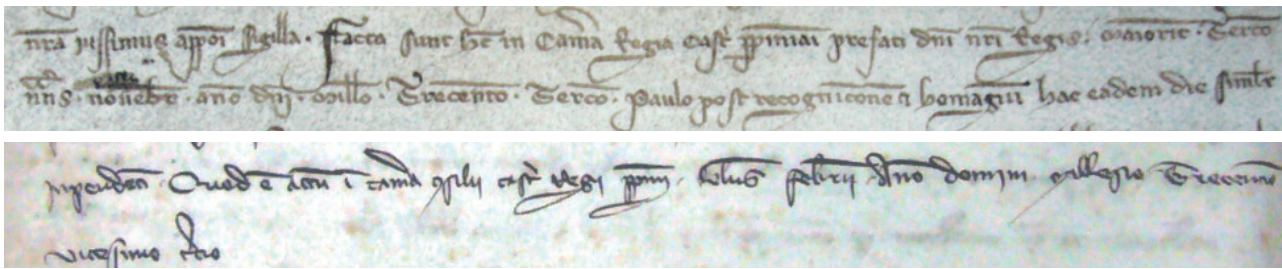 nra iussimus appoi sigilla. Facta sunt hec in Cama Regia castr ppiniani prefati dni nri Regis. Maioric. Tercio
nns. novebr. ano dni. Millo. Trecento. Tercio. Paulo post recognicone & homagiu hac eadem die simlr
inpendeti. Quod e actu i cama gsilii castr regii ppin. Idus febrii Ano domini Millesio Trecento
vicessimo tcio